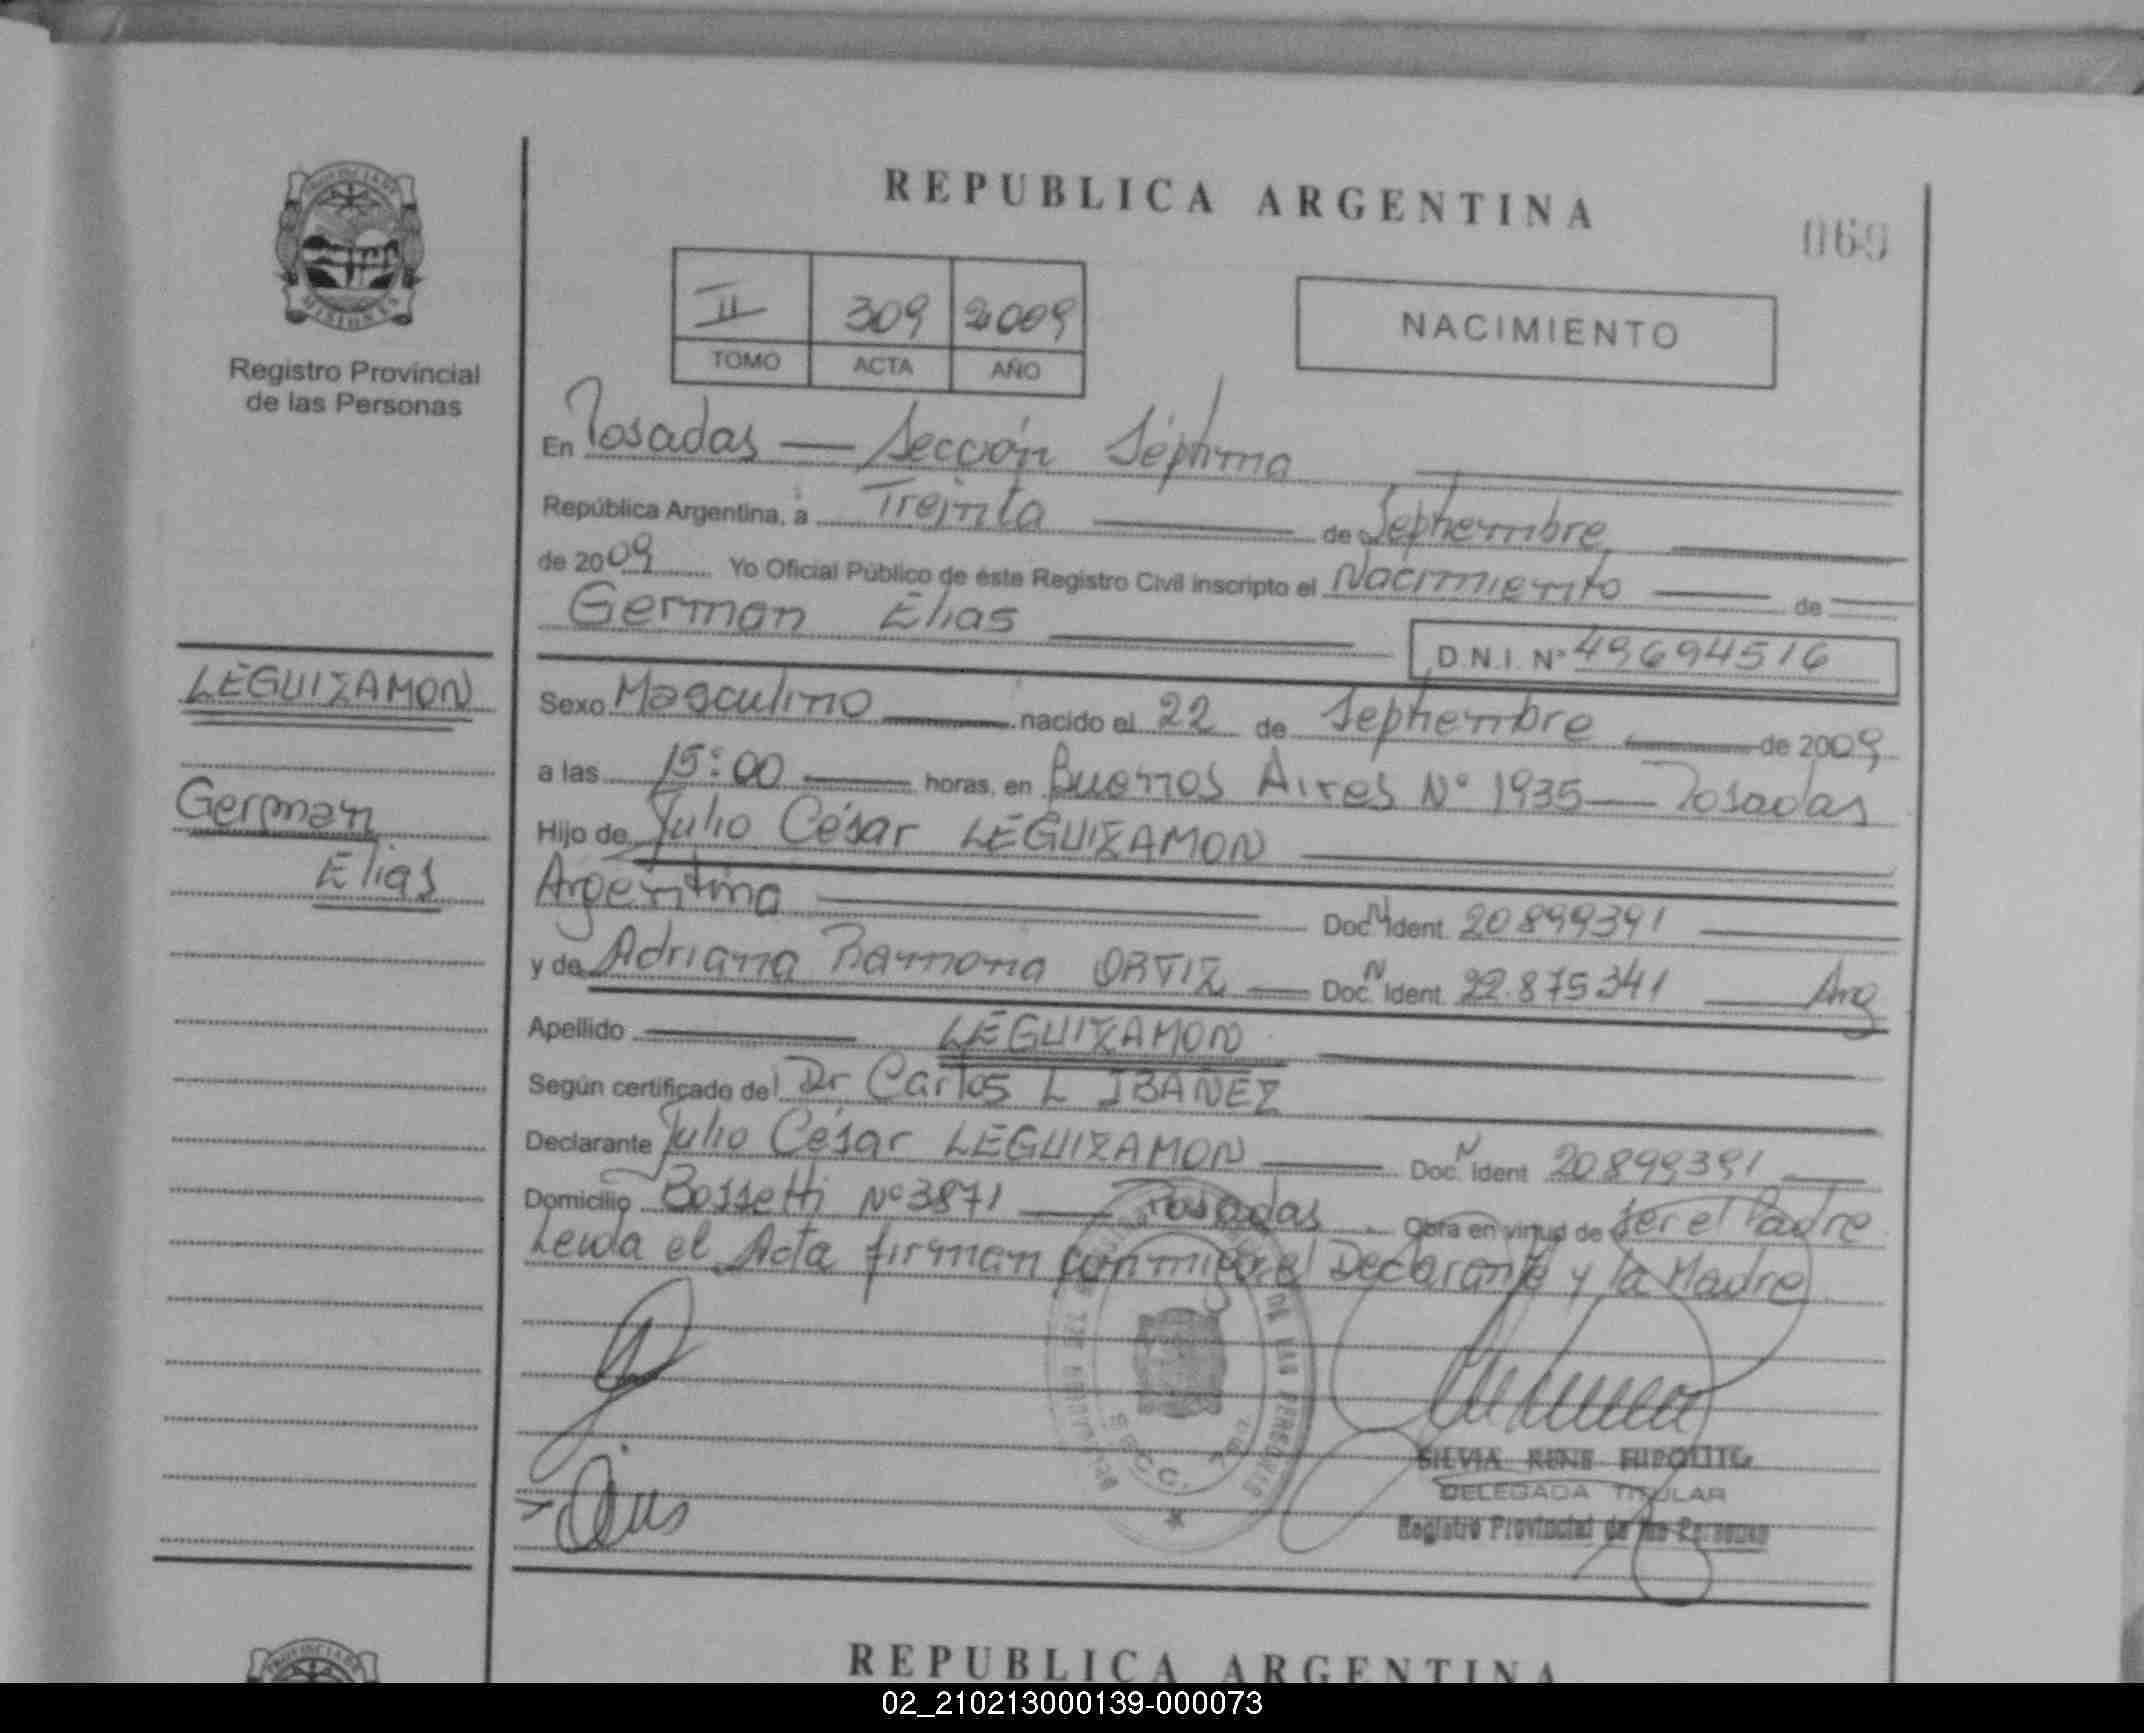 REPUBLICA ARGENTINA
069
PROVINCIA DE
MISIONES
Registro Provincial
de las Personas
II 309 2009
TOMO ACTA AÑO
NACIMIENTO
En Posadas — Sección Séptima
República Argentina, a Treinta de Septiembre,
de 2009 Yo Oficial Público de éste Registro Civil inscripto el Nacimiento de
German Elias
D.N.I. Nº 49694516
LEGUIZAMON
German
Elias
Sexo Masculino nacido el 22 de Septiembre de 2009
a las 15:00 horas, en Buenos Aires Nº 1935 — Posadas
Hijo de Julio César LEGUIZAMON
Argentina Doc. N Ident. 20899391
y de Adriana Ramona ORTIZ — Doc. N Ident. 22.875341 — Arg
Apellido LEGUIZAMON
Según certificado del Dr Carlos L IBAÑEZ
Declarante Julio César LEGUIZAMON Doc. N Ident 20899391
Domicilio Bossetti Nº 3871 — Posadas Obra en virtud de ser el Padre
Leida el Acta firman conmigo el Declarante y la Madre
DE LAS PERSONAS
SECC.
SILVIA RENE HIPOLITO
DELEGADA TITULAR
Registro Provincial de las Personas
REPUBLICA ARGENTINA
02_210213000139-000073